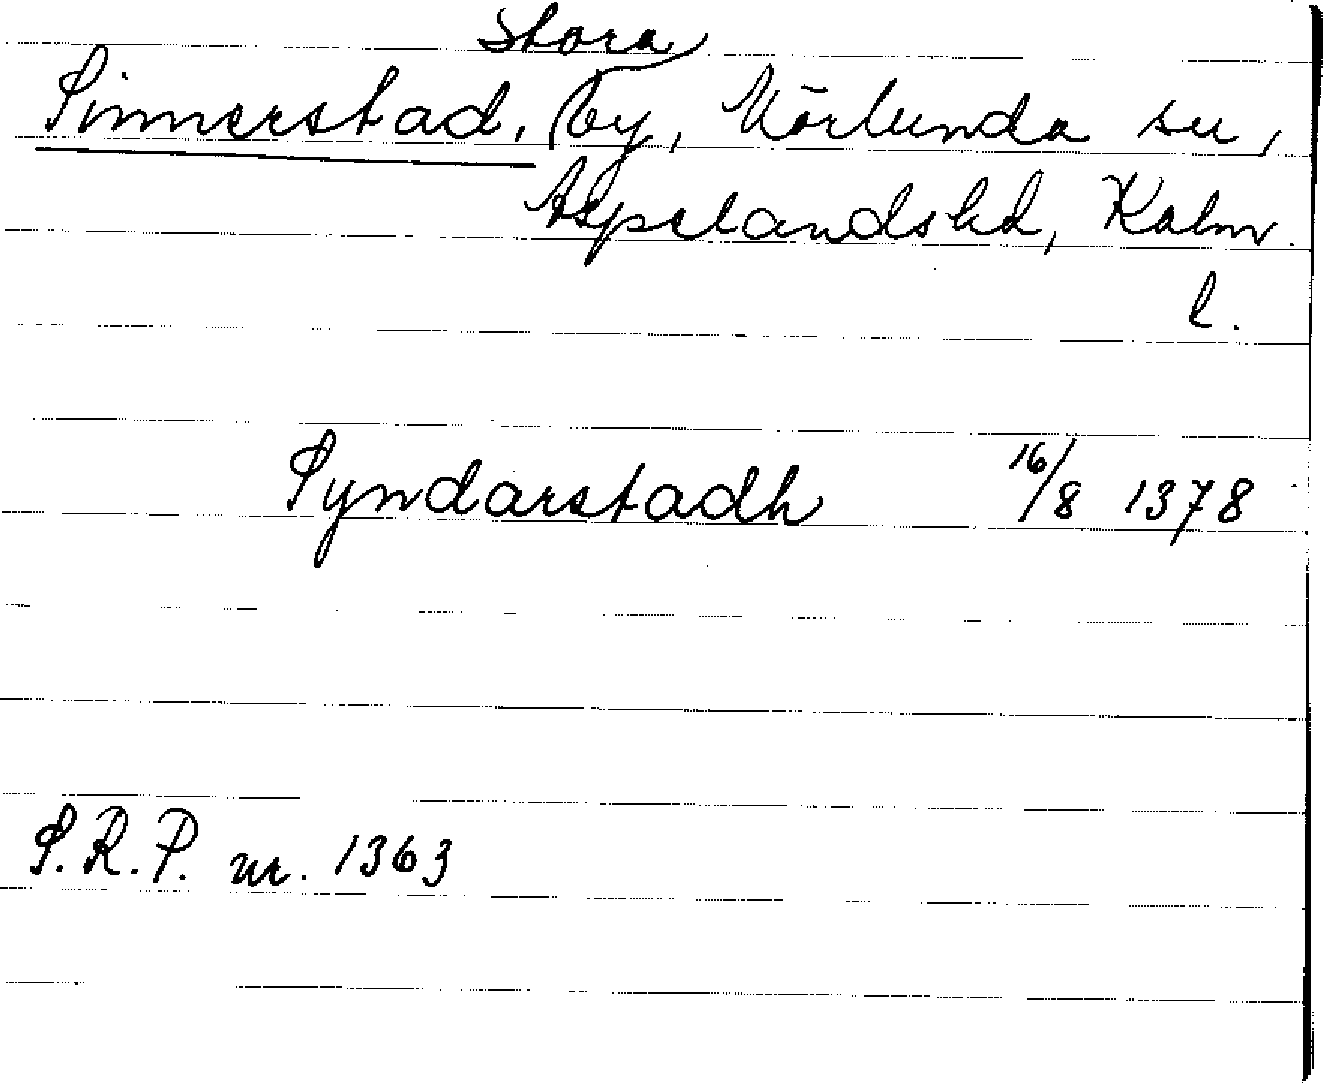 Stora
Sinnerstad, by, Mörlunda sn,
Aspelandshd, Kalm.
l.
Syndarstadh 16/8 1378
S.R.P. nr. 1363